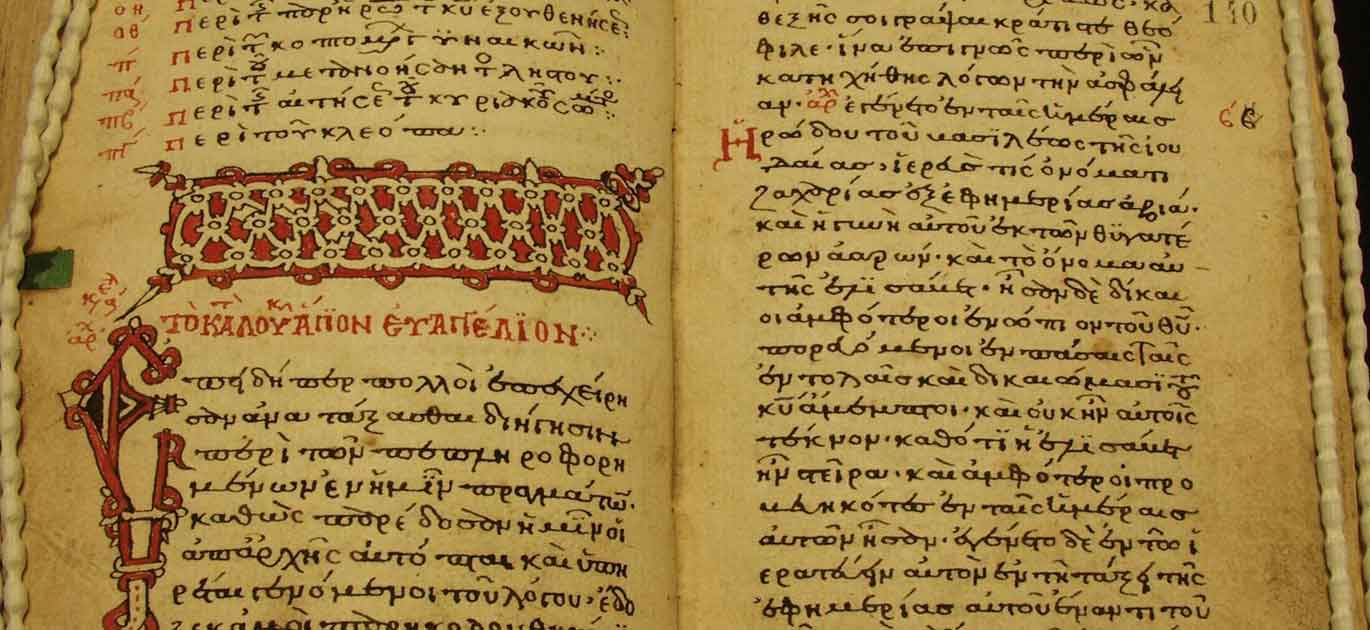 Περὶ τ παρ ηρω τ κυ ἐξουθενήσε:
Περὶ τ κοπτομ γυναικῶν:·
π Περὶ τ μετανοήσαντ ληστοῦ:·
πα Περὶ τ αἰτήσε τ κυριακοῦ σω
πβ Περὶ τοῦ κλεόπα:·
πγ
ΤΟ ΚΑΤ ΛΟΥΚ ΑΓΙΟΝ ΕΥΑΓΓΕΛΙΟΝ
Ἐπειδή περ πολλοὶ ἐπεχείρη
σαν ἀνατάξασθαι διήγησιν
περὶ τῶν πεπληροφορη
μένων ἐν ἡμῖν πραγμάτων·
καθὼς παρέδοσαν ἡμῖν οἱ
ἀπαρχῆς αὐτόπται καὶ ὑπη
ρέται γενόμενοι τοῦ λόγου· ἔδο
ξε κἀμοὶ παρηκολουθη
140
θεξῆς σοι γράψαι κράτιστε θεό
φιλε· ἵνα ἐπιγνῷς περὶ ὧν
κατηχήθης λόγων τὴν ἀσφάλει
αν· ἀρχ ἐγένετο ἐν ταῖς ἡμέραις
Ἡρώδου τοῦ βασιλέως τῆς ἰου
δαίας, ἱερεύς τις ὀνόματι
ζαχαρίας ἐξ ἐφημερίας ἀβιά·
καὶ ἡ γυνὴ αὐτοῦ ἐκ τῶν θυγατέ
ρων ἀαρών· καὶ τὸ ὄνομα αὐ
τῆς ἐλισάβετ· ἦσαν δὲ δίκαι
οι ἀμφότεροι ἐνώπιον τοῦ θυ·
πορευόμενοι ἐν πάσαις ταῖς
ἐντολαῖς καὶ δικαιώμασι τοῦ
κυ ἄμεμπτοι· καὶ οὐκ ἦν αὐτοῖς
τέκνον· καθότι ἡ ἐλισάβετ
ἦν στεῖρα· καὶ ἀμφότεροι προ
βεβηκότες ἐν ταῖς ἡμέραις
αὐτῶν ἦσαν· ἐγένετο δὲ ἐν τῷ ἱ
ερατεύειν αὐτὸν ἐν τῇ τάξει τῆς
ἐφημερίας αὐτοῦ ἔναντι τοῦ